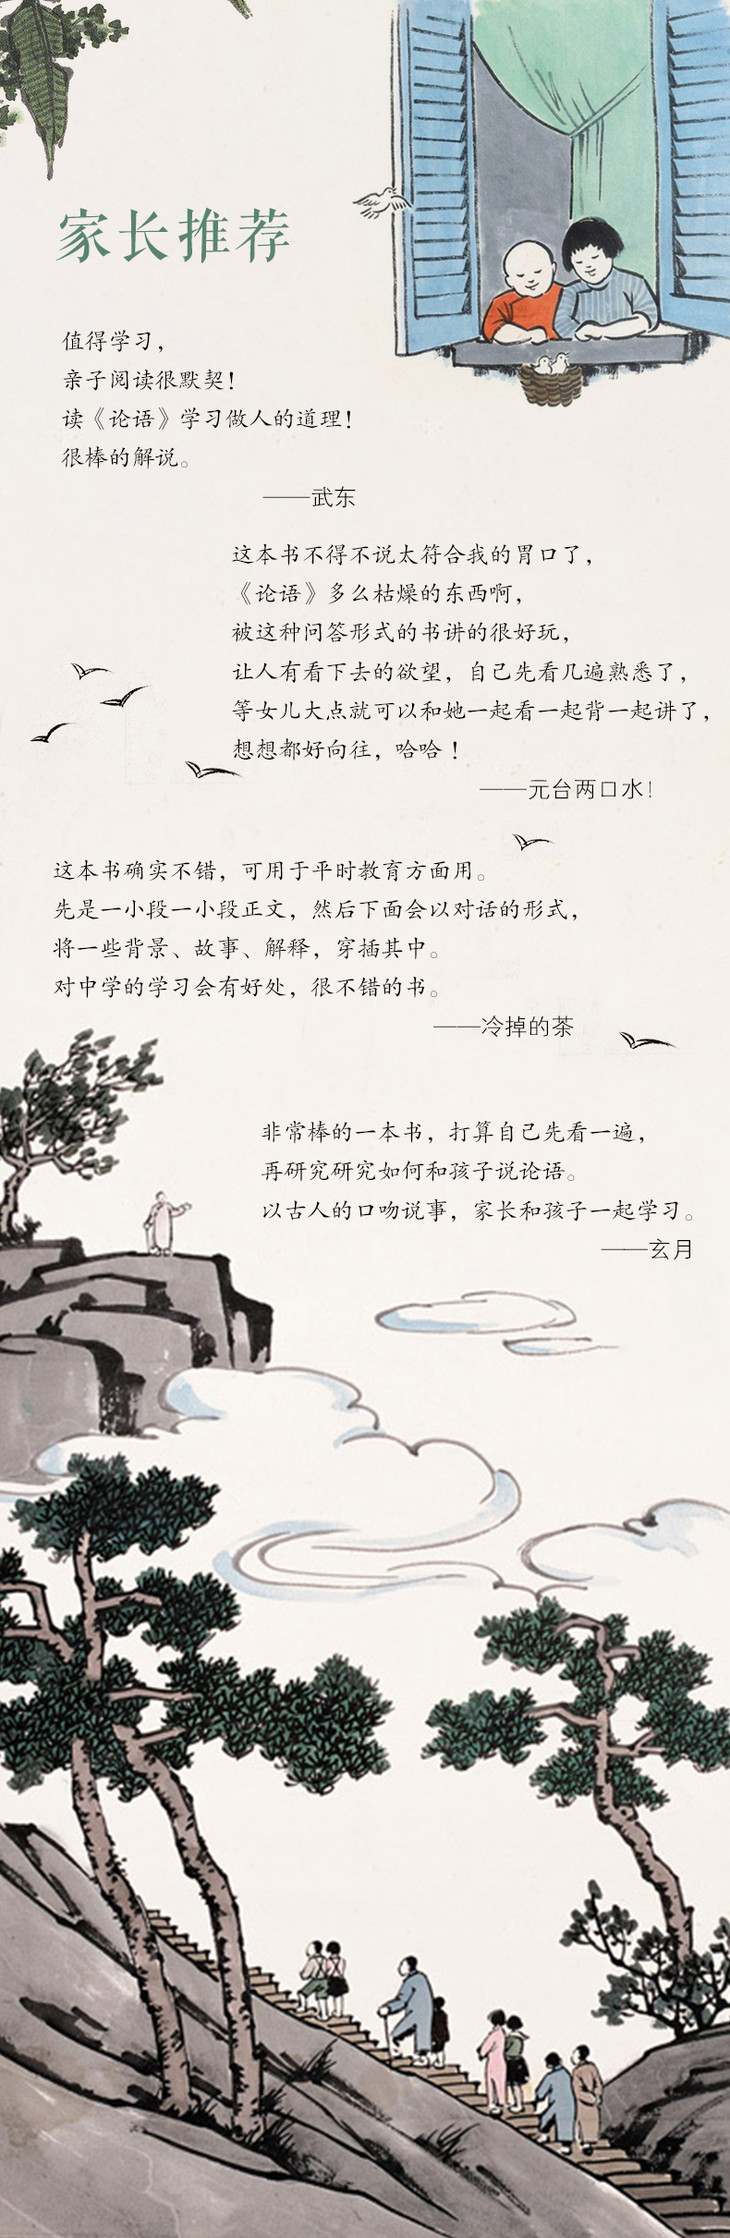 家长推荐
值得学习，
亲子阅读很默契！
读《论语》学习做人的道理！
很棒的解说。
——武东
这本书不得不说太符合我的胃口了，
《论语》多么枯燥的东西啊，
被这种问答形式的书讲的很好玩，
让人有看下去的欲望，自己先看几遍熟悉了，
等女儿大点就可以和她一起看一起背一起讲了，
想想都好向往，哈哈！
——元台两口水！
这本书确实不错，可用于平时教育方面用。
先是一小段一小段正文，然后下面会以对话的形式，
将一些背景、故事、解释，穿插其中。
对中学的学习会有好处，很不错的书。
——冷掉的茶
非常棒的一本书，打算自己先看一遍，
再研究研究如何和孩子说论语。
以古人的口吻说事，家长和孩子一起学习。
——玄月